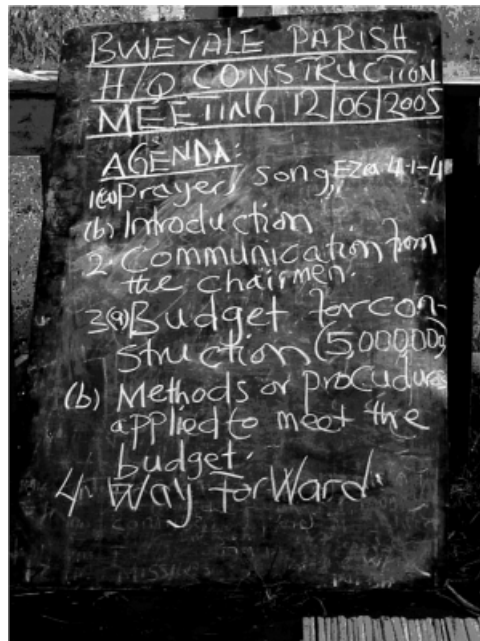 BWEYALE PARISH
H/Q CONSTRUCTION
MEETING 12/06/2005
AGENDA:
1(a) Prayer/song, EZRA 4-1-4
(b) Introduction
2. Communication from
the chairmen.
3(a) Budget for con-
struction (5,000,000)
(b) Methods or procudures
applied to meet the
budget.
4. Way forward.